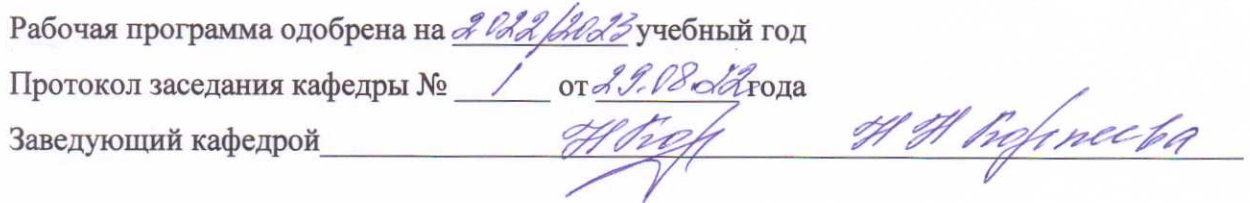 Рабочая программа одобрена на 2022/2023 учебный год
Протокол заседания кафедры № 1 от 29.08.22 года
Заведующий кафедрой НКор Н Н Корнеева